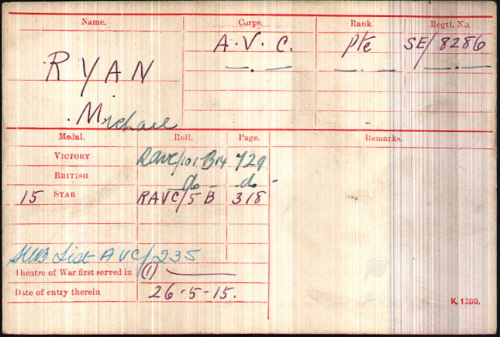 Name. Corps. Rank. Regtl. No.
RYAN A.V.C. Pte SE/8286
Michael
Medal. Roll. Page. Remarks.
VICTORY RAVC/101 B14 729
BRITISH do do
15 STAR RAVC/5B 318
SWB List AVC/235
Theatre of War first served in (1)
Date of entry therein 26-5-15.
K. 1380.